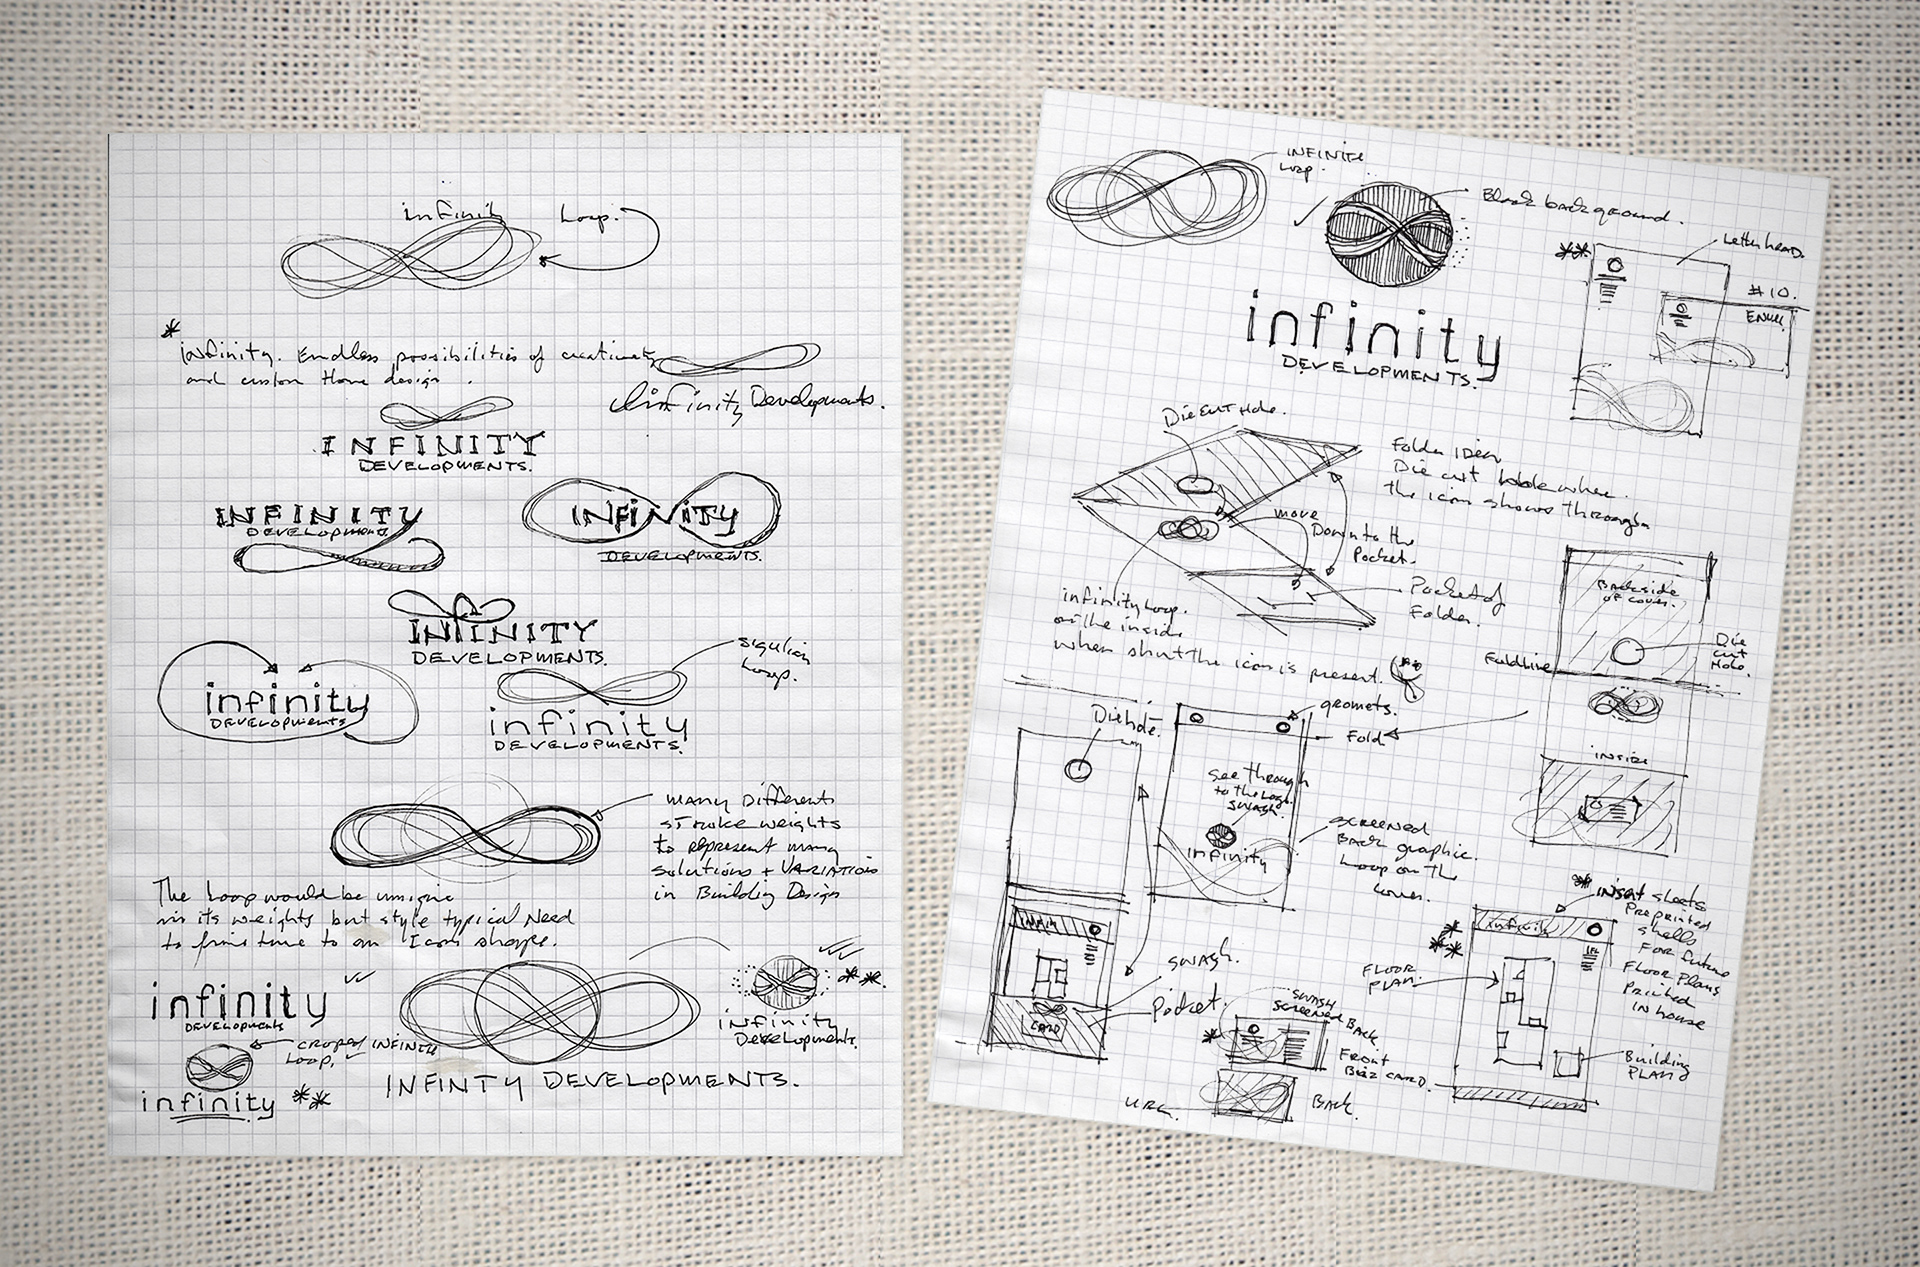 infinity Loop.
* infinity. Endless possibilities of creativity
and custom Home design.
Infinity Developments.
INFINITY
DEVELOPMENTS.
INFINITY
DEVELOPMENTS.
INFINITY
DEVELOPMENTS.
INFINITY
DEVELOPMENTS.
infinity
DEVELOPMENTS
Loop.
infinity
DEVELOPMENTS.
many Different
stroke weights
to represent many
solutions + VARIATIONS
in Building Design
The Loop would be unique
in its weights but style typical Need
to fine tune to an Icon shape.
infinity
DEVELOPMENTS
infinity
Developments.
CROPED INFINITE
LOOP.
infinity **
INFINTY DEVELOPMENTS.
INFINITE
Loop.
Black background.
infinity
DEVELOPMENTS.
**
Letterhead.
#10.
ENVEL.
Die cut Hole.
Folder Idea
Die cut hole where
the icon shows through
move
Down to the
Pocket.
Pocket of
Folder.
infinity Loop.
on the inside
when shut the icon is present.
Backside
of cover.
Die
cut
Hole
Foldline
INSIDE
gromets.
Fold
Die hole.
see through
to the Logo
SWASH.
infinity
SCREENED
Back graphic.
Loop on the
cover.
SWASH.
Pocket.
CARD
SWASH
SCREENED BACK.
Front
Biz CARD.
URL.
BACK.
** insert sheets
Preprinted
shells
For future
Floor Plans
Printed
IN house
infinity
FLOOR
PLAN.
Building
PLAN